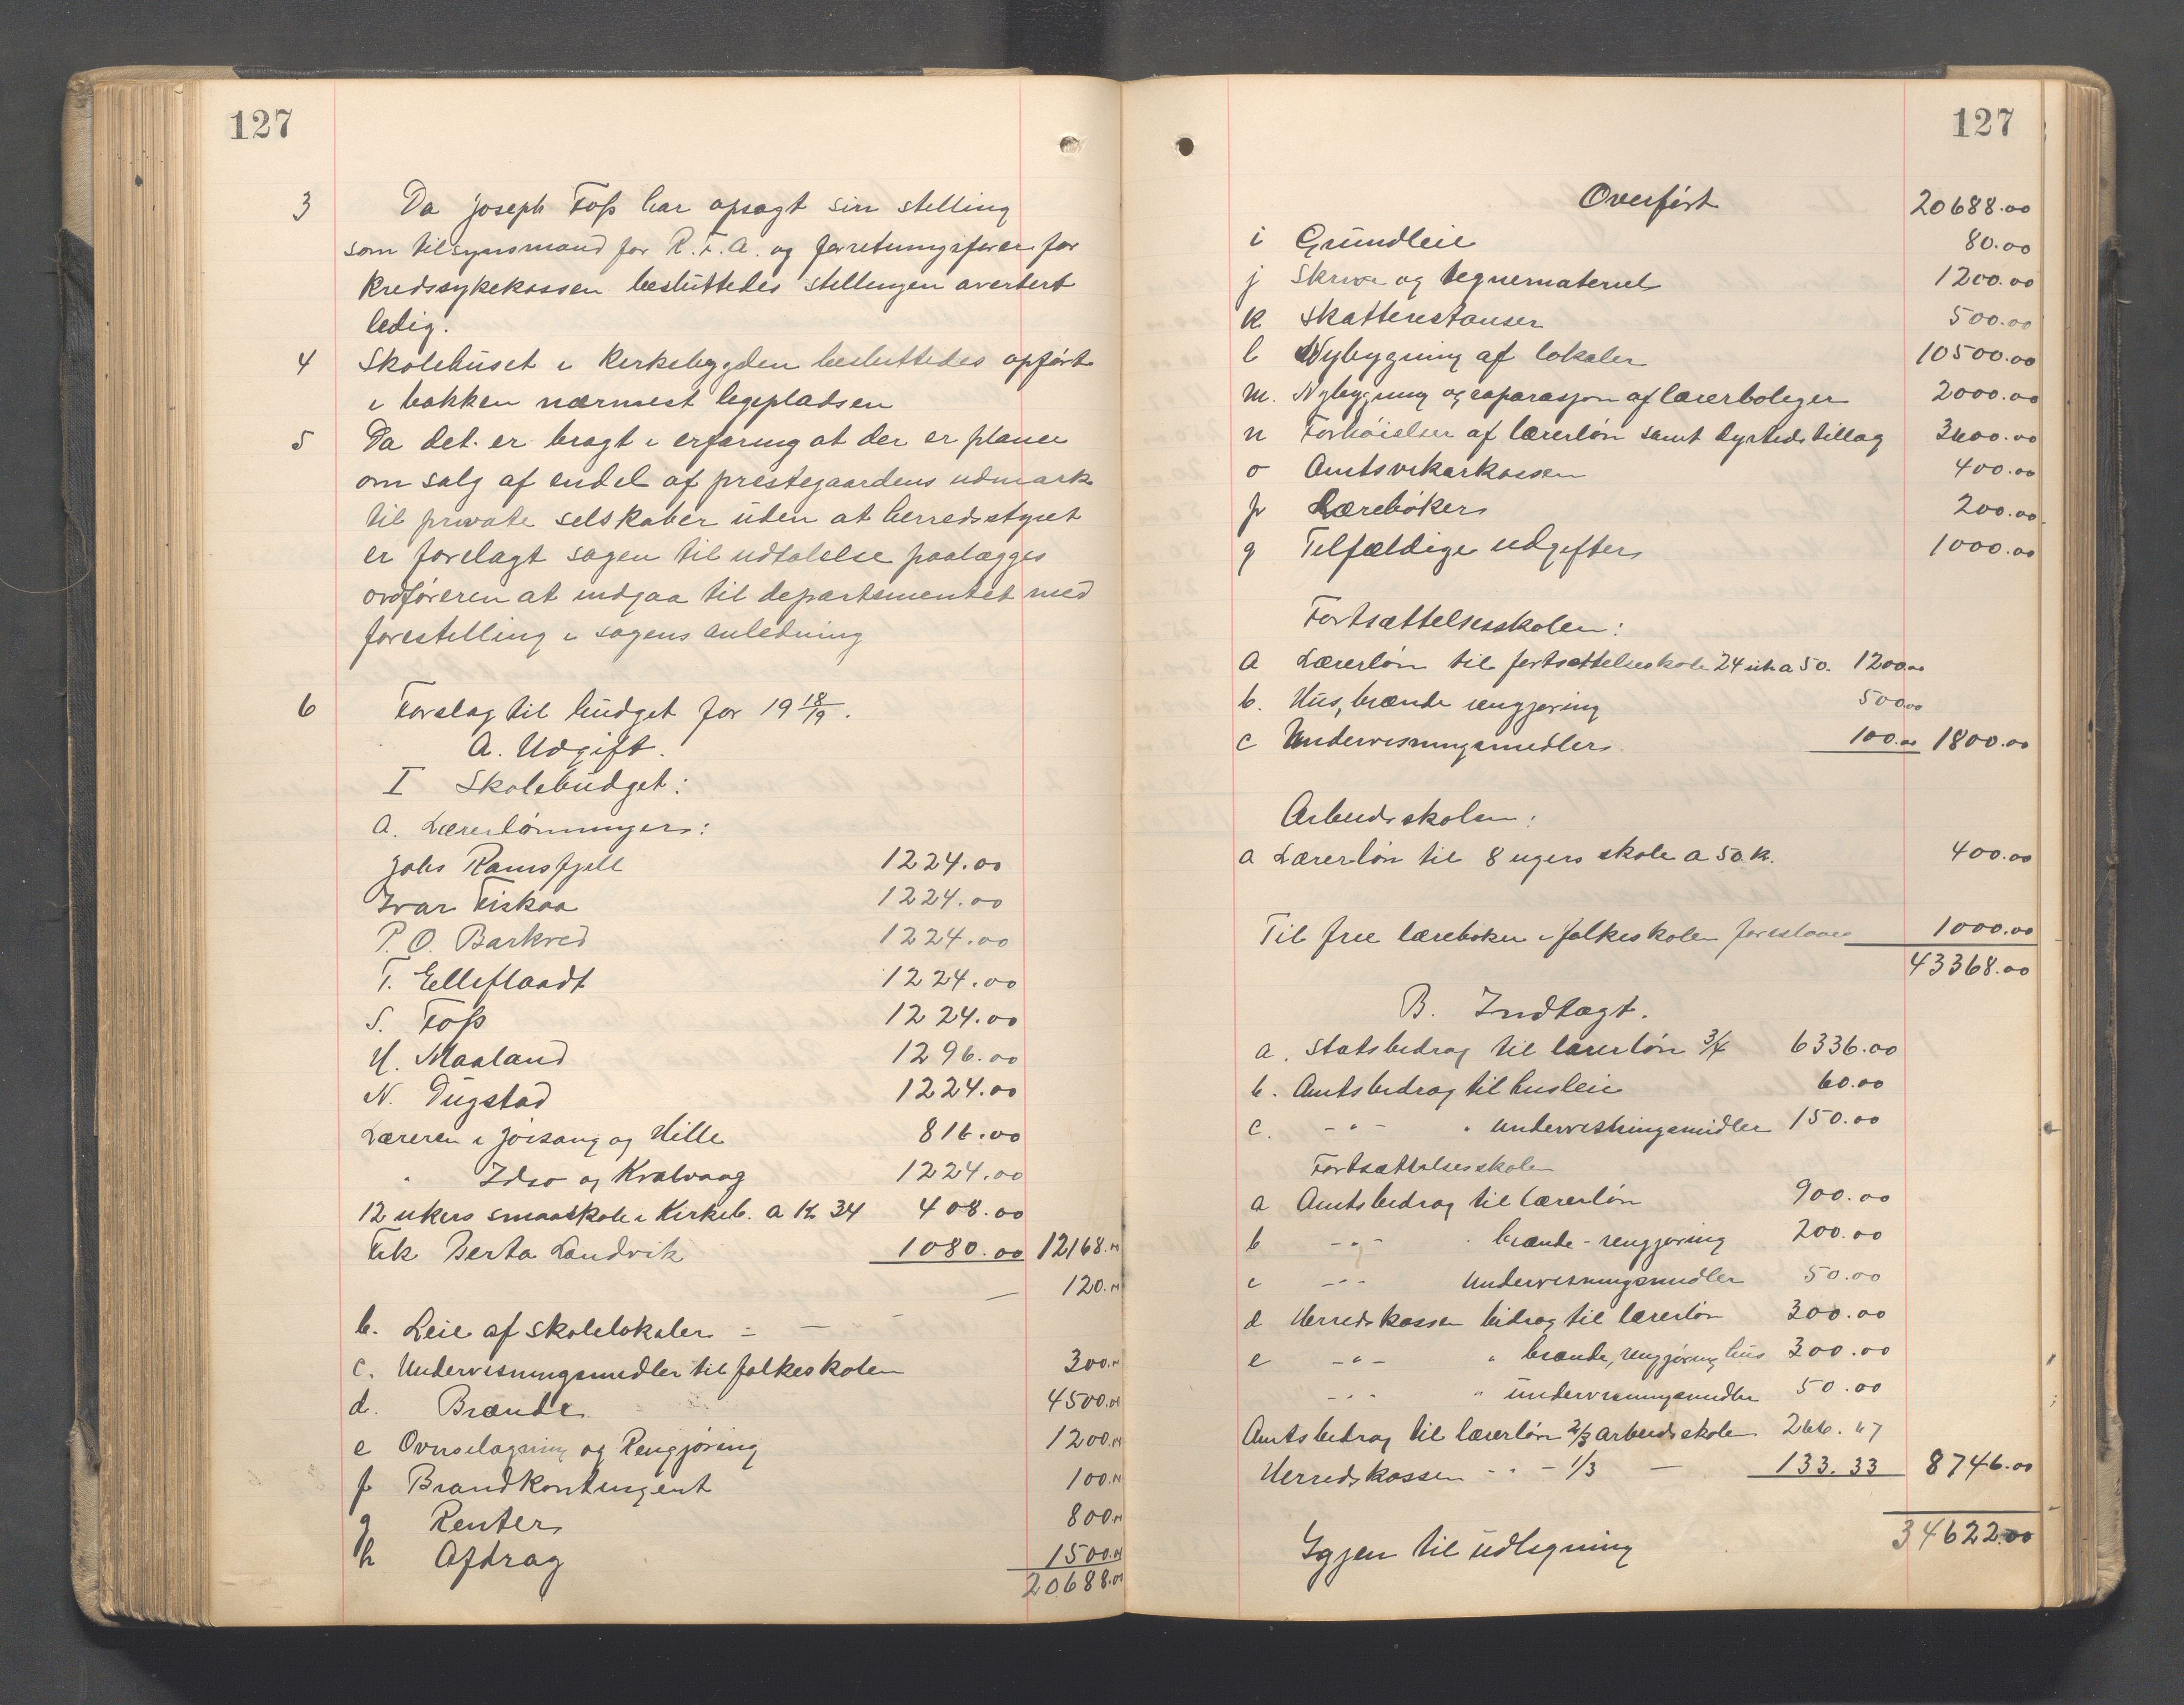 127
3 Da Joseph Foss har opsagt sin stilling
som tilsynsmand for R.F.A. og forretningsfører for
Kredssykekassen besluttedes stillingen avertert
ledig.
4 Skolehuset i Kirkebygden besluttedes opført
i bakken nærmest legepladsen
5 Da det er bragt i erfaring at der er planer
om salg af endel af prestegaardens udmark
til private selskaber uden at herredsstyret
er forelagt sagen til udtalelse paalægges
ordføreren at indgaa til departementet med
forestilling i sagens anledning
6 Forslag til budget for 19 18/19.
A. Udgift.
I Skolebudget:
a. Lærerlønninger:
Johs Ramsfjell 1224.00
Ivar Fiskaa 1224.00
P. O. Barkved 1224.00
T. Elleflaadt 1224.00
S. Foss 1224.00
H. Maaland 1296.00
N. Dugstad 1224.00
Læreren i Jøsang og Hille 816.00
" Idso og Kvalvaag 1224.00
12 ukers smaaskole i Kirkeb. a Kr 34 408.00
Frk Berta Landvik 1080.00 12168.00
120.00
b. Leie af skolelokaler - -
c. Undervisningsmidler til folkeskolen 300.00
d. Brænde 4500.00
e Ovnsilægning og Rengjøring 1200.00
f Brandkontingent 100.00
g Renter 800.00
h Afdrag 1500.00
20688.00
127
Overført 20688.00
i Grundleie 80.00
j Skrive og tegnemateriel 1200.00
k Skatterestanser 500.00
l Nybygning af lokaler 10500.00
m. Nybygning og reparasjon af lærerboliger 2000.00
n Forhøielser af lærerløn samt dyrtidstillæg 3600.00
o Amtsvikarkassen 400.00
p Lærebøker 200.00
q Tilfældige udgifter 1000.00
Fortsættelsesskolen:
a Lærerløn til fortsættelseskole 24 uk a 50. 1200.00
b. Hus, brænde rengjøring 500.00
c Undervisningsmidler 100.00 1800.00
Arbeidsskolen:
a Lærerløn til 8 ugers skole a 50 k. 400.00
Til frie lærebøker i folkeskolen foreslaaes 1000.00
43368.00
B. Indtægt.
a. Statsbidrag til lærerløn 3/4 6336.00
b. Amtsbidrag til husleie 60.00
c. - " - " undervisningsmidler 150.00
Fortsættelsesskolen
a Amtsbidrag til lærerløn 900.00
b - " - " brænde - rengjøring 200.00
c - " - Undervisningsmidler 50.00
d Herredskassen bidrag til lærerløn 300.00
e - " - " brænde, rengjøring hus 300.00
- " - " undervisningsmidler 50.00
Amtsbidrag til lærerløn 2/3 arbeidsskolen 266.67
Herredskassen - " - 1/3 - 133.33 8746.00
Igjen til udligning 34622.00